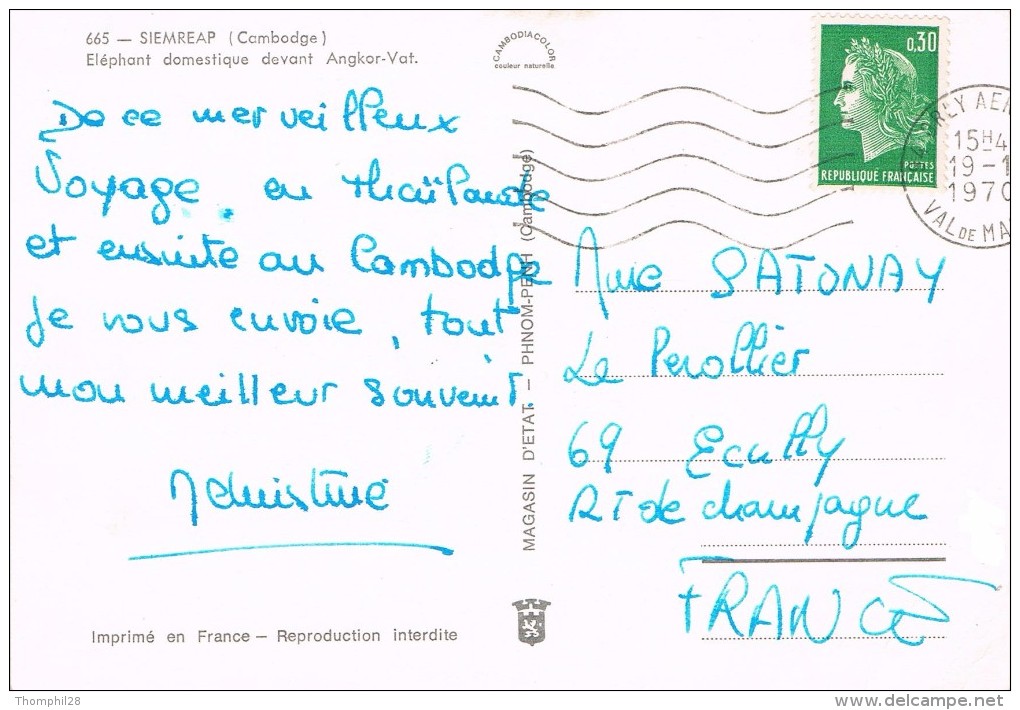 665 — SIEMREAP (Cambodge)
Eléphant domestique devant Angkor-Vat.
CAMBODIACOLOR
couleur naturelle
0,30
POSTES
REPUBLIQUE FRANÇAISE
ORLY AER
15H4
19-1
1970
VAL DE MA
De ce merveilleux
Voyage en thaïlande
et ensuite au Cambodge
je vous envoie, tout
mon meilleur souvenir.
MAGASIN D'ETAT — PHNOM-PENH (Cambodge)
Mme SATONAY
Le Perollier
69 Ecully
RT de champagne
FRANCE
Imprimé en France — Reproduction interdite
Thomphil28
www.delcampe.net